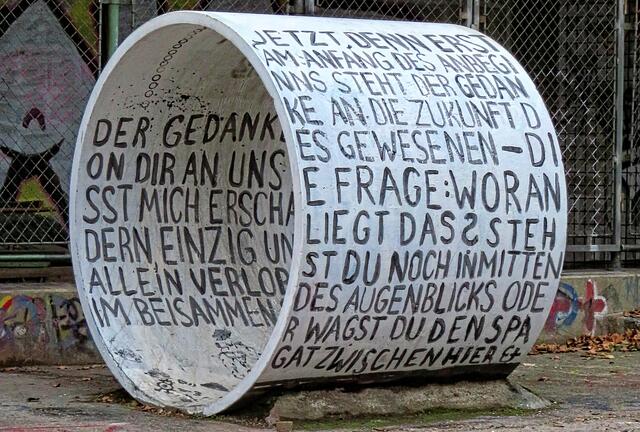 DER GEDANK
ON DIR AN UNS
SST MICH ERSCHA
DERN EINZIG UN
ALLEIN VERLOR
IM BEISAMMEN
JETZT. DENN ERST
AM ANFANG DES ANBEGI
NNS STEHT DER GEDAN
KE AN DIE ZUKUNFT D
ES GEWESENEN – DI
E FRAGE: WORAN
LIEGT DAS? STEH
ST DU NOCH INMITTEN
DES AUGENBLICKS ODE
R WAGST DU DEN SPA
GAT ZWISCHEN HIER &